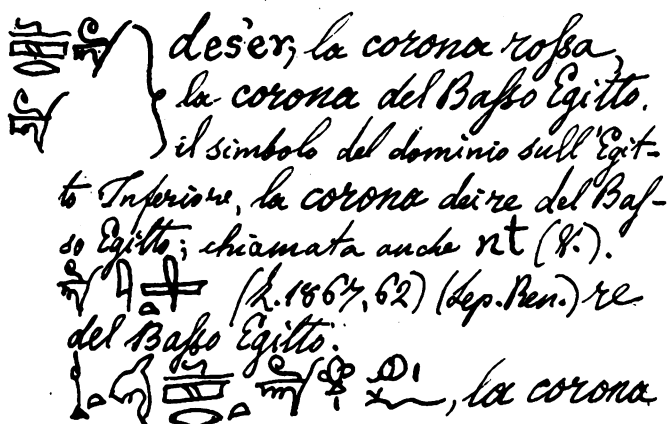 deśer, la corona roſsa,
la corona del Baſso Egitto.
il simbolo del dominio sull'Egit-
to Inferiore, la corona dei re del Baſ-
so Egitto; chiamata anche nt (V.).
(Z.1867,62) (Lep. Ren.) re
del Baſso Egitto.
, la corona